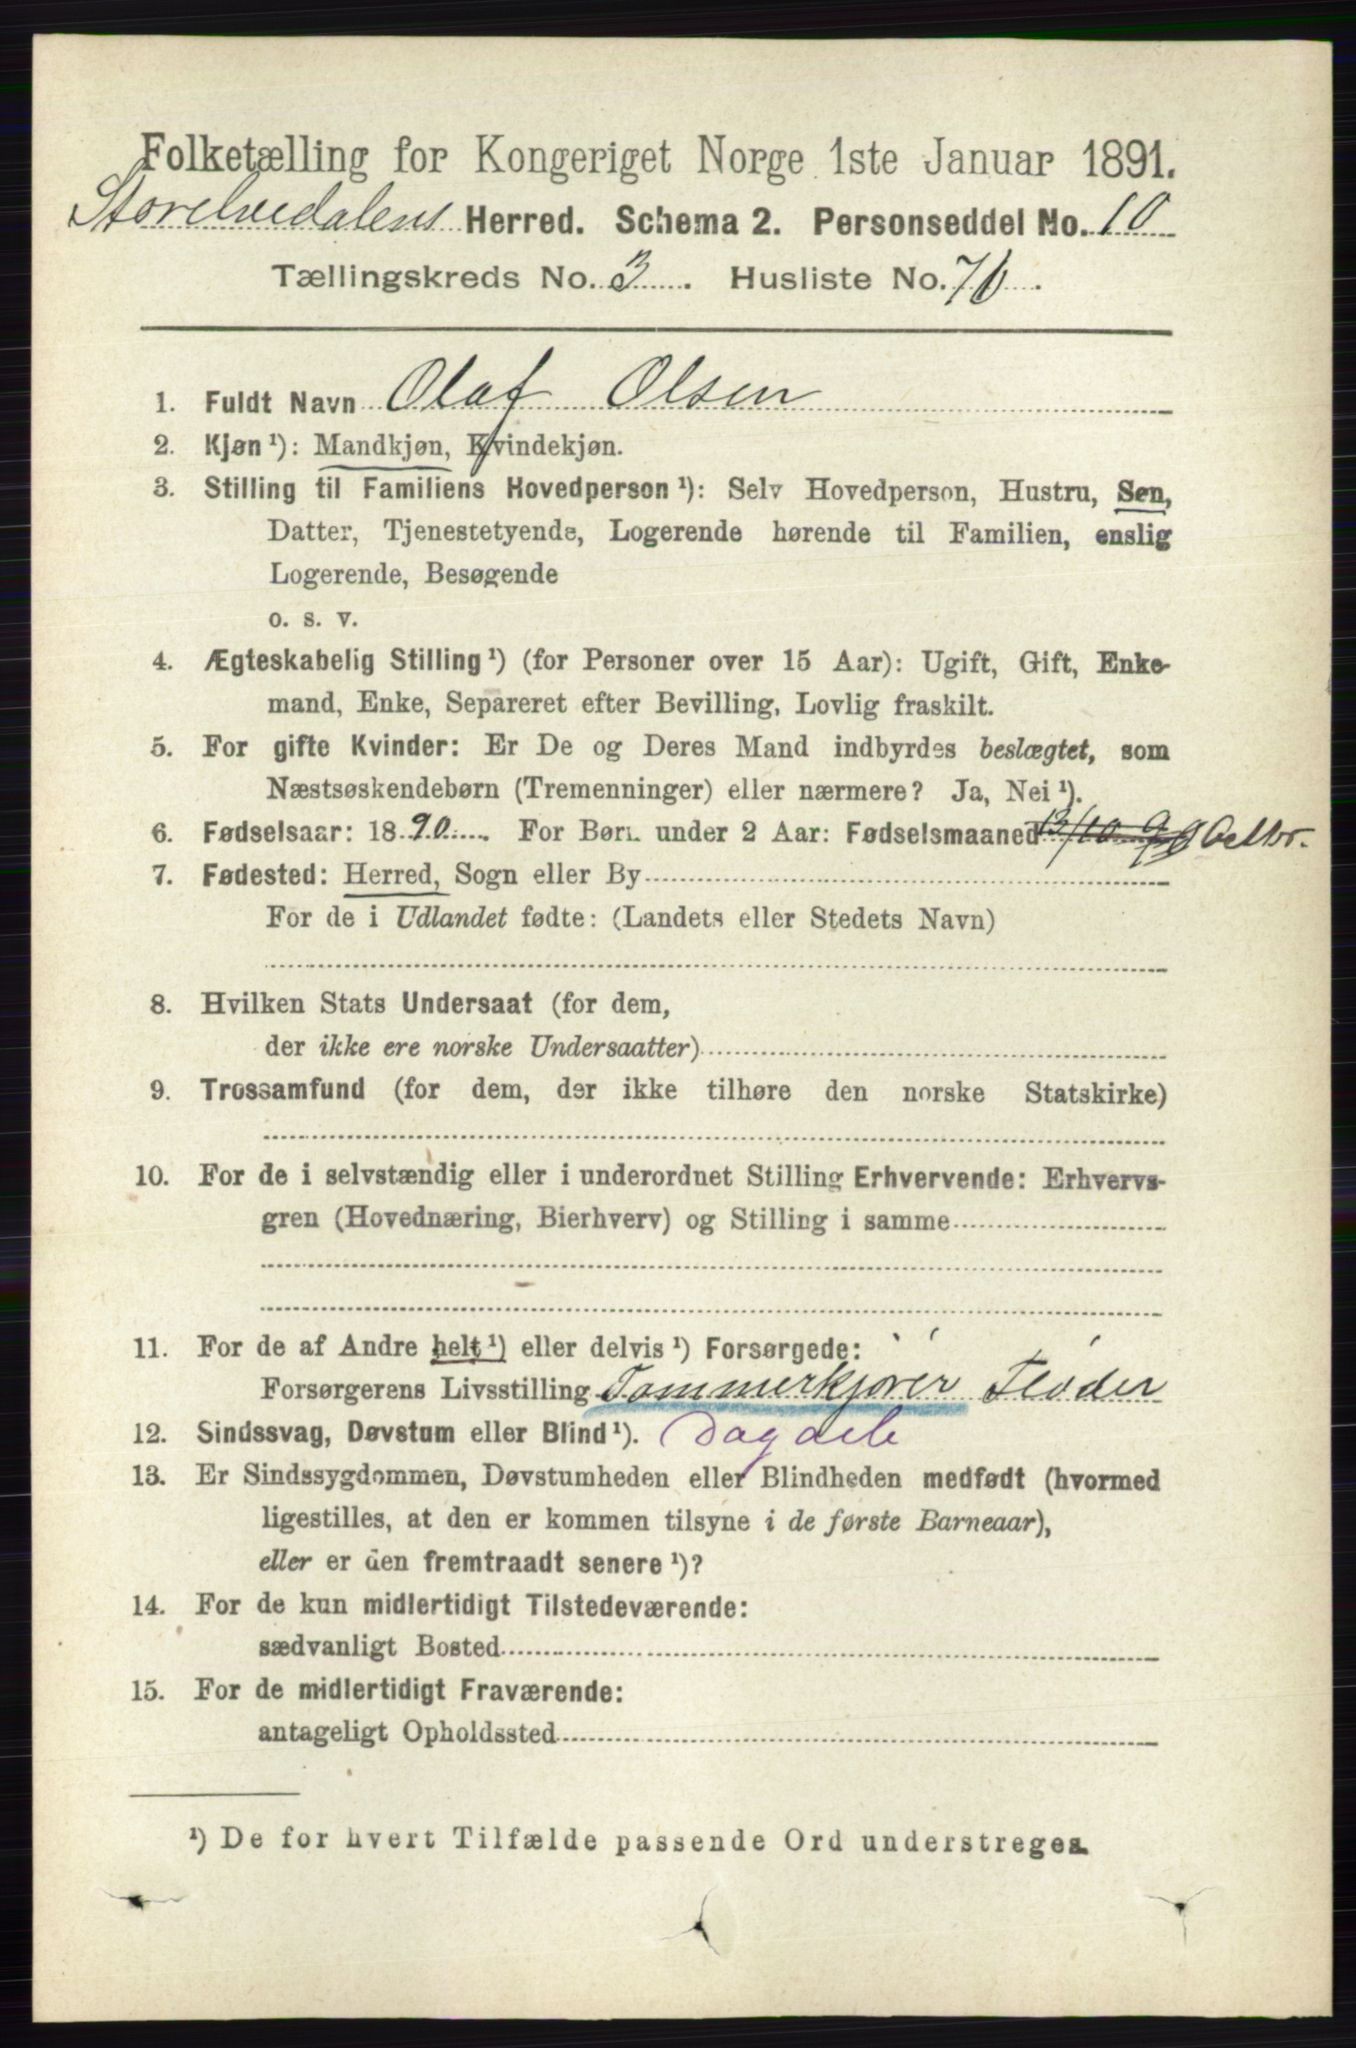 Folketælling for Kongeriget Norge 1ste Januar 1891.
Storelvedalens Herred. Schema 2. Personseddel No. 10
Tællingskreds No. 3. Husliste No. 76.
1. Fuldt Navn Olaf Olsen
2. Kjøn ¹): Mandkjøn, Kvindekjøn.
3. Stilling til Familiens Hovedperson ¹): Selv Hovedperson, Hustru, Søn,
Datter, Tjenestetyende, Logerende hørende til Familien, enslig
Logerende, Besøgende
o. s. v.
4. Ægteskabelig Stilling ¹) (for Personer over 15 Aar): Ugift, Gift, Enke-
mand, Enke, Separeret efter Bevilling, Lovlig fraskilt.
5. For gifte Kvinder: Er De og Deres Mand indbyrdes beslægtet, som
Næstsøskendebørn (Tremenninger) eller nærmere? Ja, Nei ¹).
6. Fødselsaar: 1890. For Børn under 2 Aar: Fødselsmaaned 13/10 90 Octbr.
7. Fødested: Herred, Sogn eller By
For de i Udlandet fødte: (Landets eller Stedets Navn)
8. Hvilken Stats Undersaat (for dem,
der ikke ere norske Undersaatter)
9. Trossamfund (for dem, der ikke tilhøre den norske Statskirke)
10. For de i selvstændig eller i underordnet Stilling Erhvervende: Erhvervs-
gren (Hovednæring, Bierhverv) og Stilling i samme
11. For de af Andre helt ¹) eller delvis ¹) Forsørgede:
Forsørgerens Livsstilling Tømmerkjører Fløder
12. Sindssvag, Døvstum eller Blind ¹). Dagarb
13. Er Sindssygdommen, Døvstumheden eller Blindheden medfødt (hvormed
ligestilles, at den er kommen tilsyne i de første Barneaar),
eller er den fremtraadt senere ¹)?
14. For de kun midlertidigt Tilstedeværende:
sædvanligt Bosted
15. For de midlertidigt Fraværende:
antageligt Opholdssted
¹) De for hvert Tilfælde passende Ord understreges.